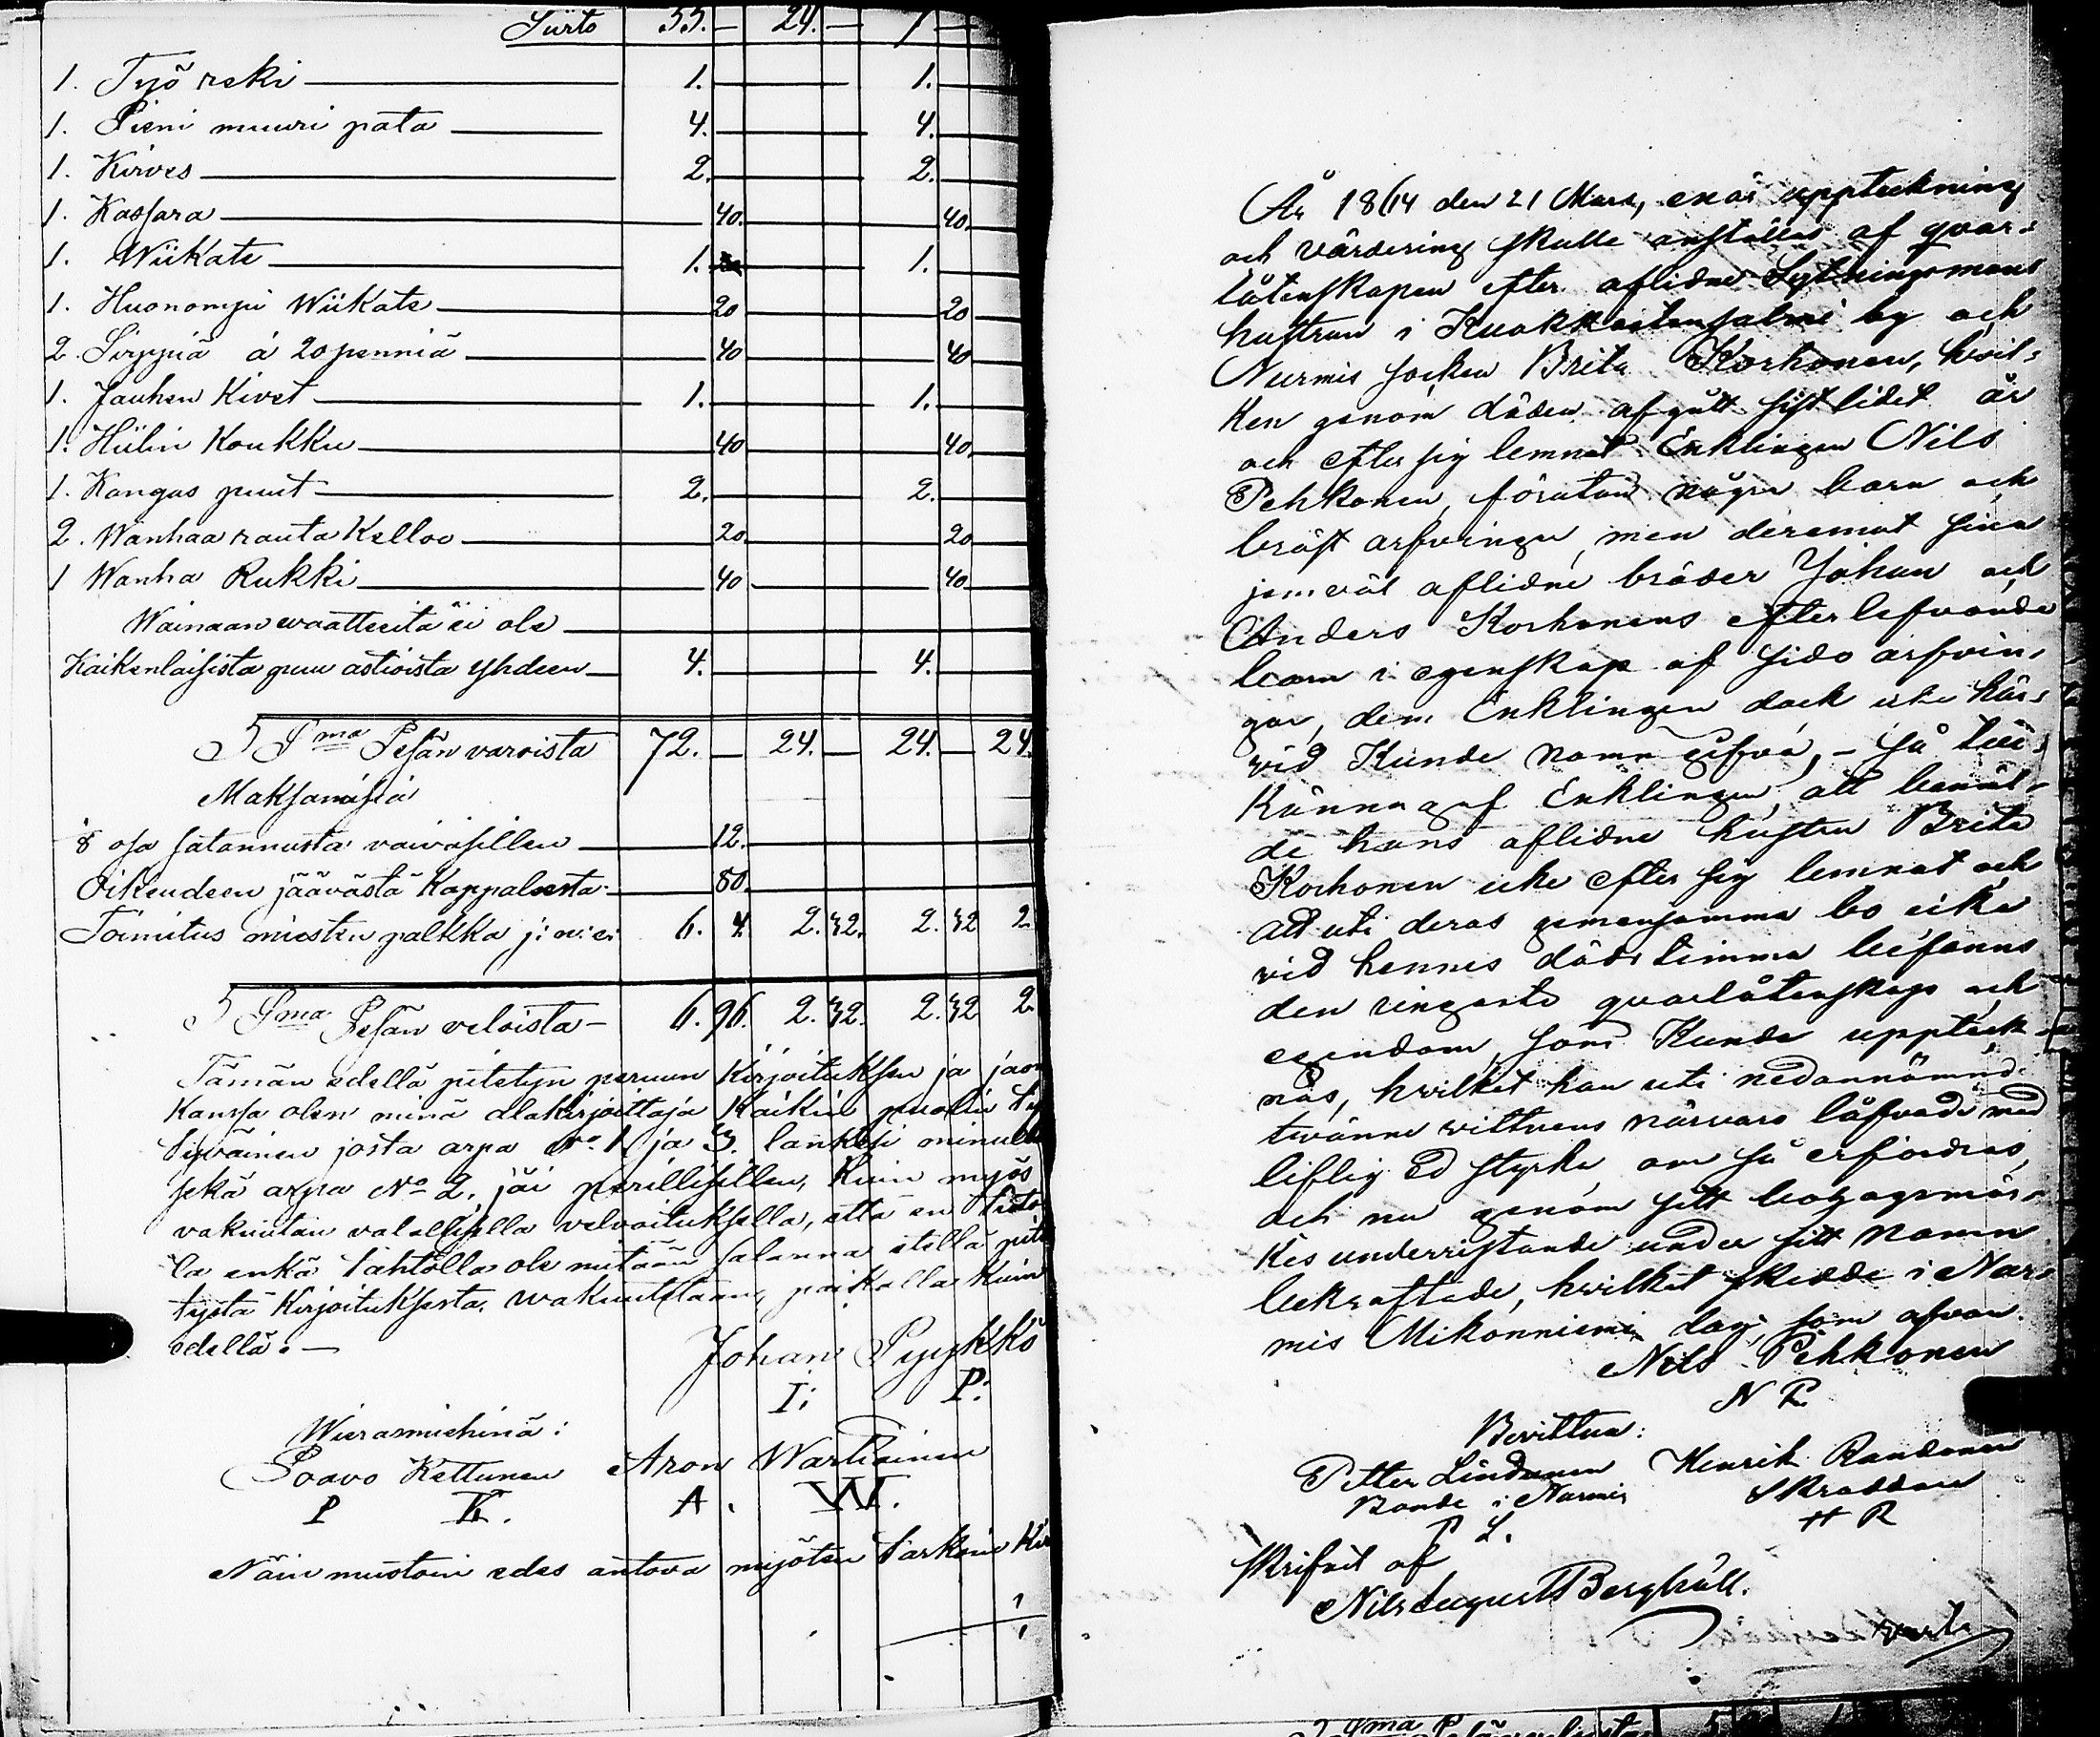 Siirto 55. — 24. — 7 —
1. Työ reki 1. 1.
1. Pieni muuri pata 4. 4.
1. Kirves 2. 2.
1. Kassara 40. 40.
1. Wiikate 1. 1.
1. Huonompi Wiikate 20 20
2. Sirppiä á 20 penniä 40 40
1. Jauhen Kivet 1. 1.
1. Hiilin Koukku 40 40.
1. Kangas puut 2. 2.
2. Wanhaa rauta Kelloo 20. 20
1 Wanha Rukki 40 40
Wainaan waatteita ei ole
Kaikenlaisista puu astioista yhdeen 4. 4.
Sma Pesän varoista 72. — 24. — 24. — 24.
Maksamisia
1/8 osa satannusta vaivasillen 12.
Oikeudeen jäävästä Kappaleesta 80.
Toimitus miesten palkka 6. 4. 2. 32. 2. 32 2.
Sma Pesän veloista — 6. 96. 2. 32. 2. 32 2.
Tämän edellä pitetyn perun Kirjoituksen ja jaon
Kanssa olen minä allakirjoittaja Kaikin puolin
tyväinen josta arpa No. 1 ja 3. lankesi minulle
sekä arpa No 2. jäi perillisillen, Kuin myös
vakuutan valallisella velvoituksella, että en
la enkä tahtolla ole mitään salanna
tystä Kirjoituksesta. wakuutetaan, paikalla Kuin
edellä. —
Johan Pyykkö
I: P:
Wierasmiehinä:
Paavo Kettunen Aron Wartiainen
P K. A. W.
Näin muotoin edes antova myöten tarkoin
År 1864 den 21 Mars, enär uppteckning
och värdering skulle anställas af qvar-
låtenskapen efter aflidne Sytningsmans
hustrun i Kuokkastensalmi by och
Nurmis socken Brita Korhonen, hvil-
ken genom döden afgått sistlidet år
och efter sig lemnat Enklingen Nils
Pehkonen, förutan några barn och
bröst arfvingar, men deremot sina
jemväl aflidne bröder Johan och
Anders Korhonens efterlefvande
barn i egenskap af sido arfvin-
gar, dem Enklingen dock icke här-
vid Kunde namn gifva, — så till-
Kännagaf Enklingen, att bemäl-
de hans aflidne hustru Brita
Korhonen icke efter sig lemnat och
att uti deras gemensamma bo icke
vid hennes dödstimma befanns
den ringaste qvarlåtenskap och
egendom, som Kunde uppteck-
nas, hvilket han uti nedannämnde
tvänne vittnens närvaro låfvade med
liflig Ed styrka, om så erfordras,
och nu genom sitt bomärke
underristande under sitt namn
bekraftade, hvilket skedde i Nur-
mis Mikonniemi dag som ofvan.
Nils Pehkonen
N P.
Bevittna:
Petter Lindunen Henrik Randonen
Bonde i Nurmis Skräddare
P L. H R
Skrifvit af
Nils August Berghäll.